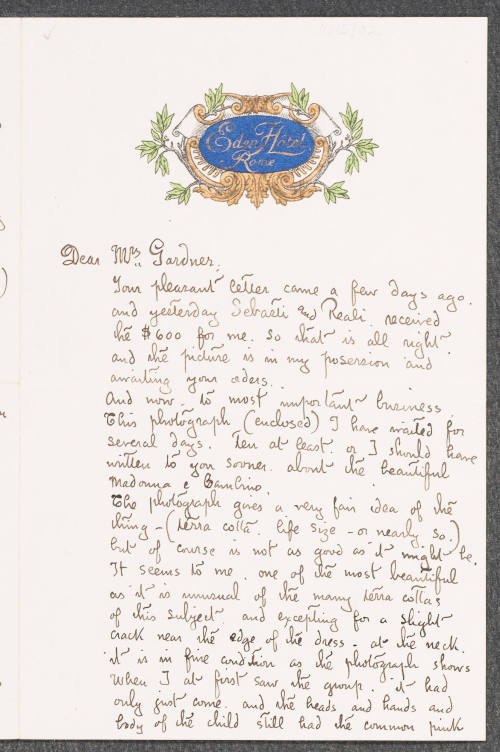 Eden Hôtel
Rome
Dear Mrs. Gardner,
Your pleasant letter came a few days ago.
and yesterday Sebasti and Reali. received
the $600 for me. So that is all right
and the picture is in my posession and
awaiting your orders.
And now. to most important business.
This photograph (enclosed) I have waited for
several days. Ten at least. or I should have
written to you sooner. about the beautiful
Madonna e Bambino.
The photograph gives a very fair idea of the
thing - (terra cotta. life size - or nearly so.)
but of course is not as good as it might be.
It seems to me. one of the most beautiful
as it is unusual of the many terra cottas
of this subject and excepting for a slight
crack near the edge of the dress - at the neck.
it is in fine condition as the photograph shows
When I at first saw the group. it had
only just come. and the heads and hands and
body of the child still had the common pink